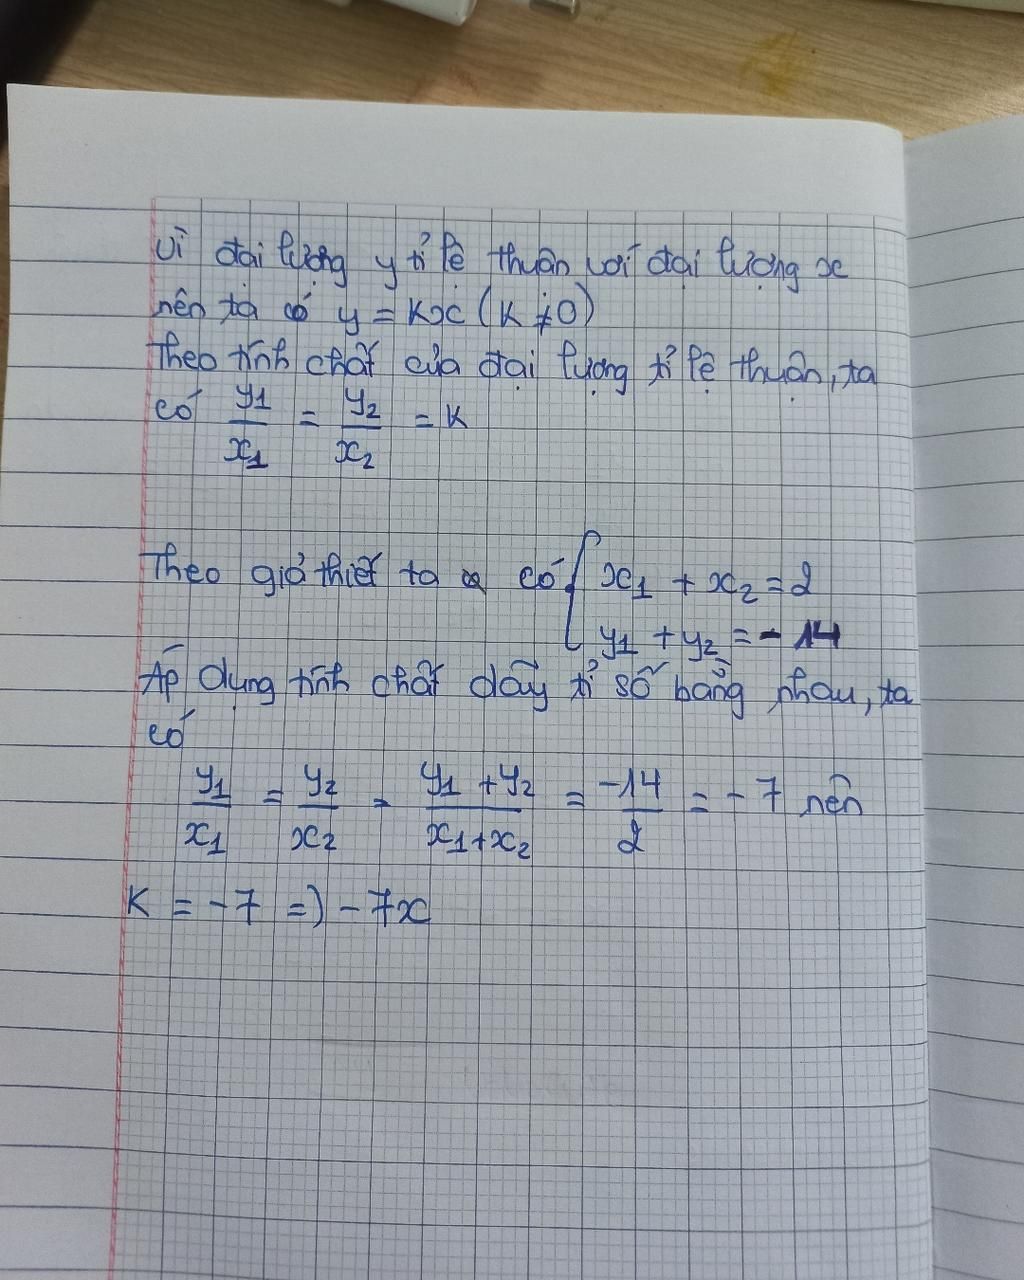 Vì đại lượng y tỉ lệ thuận với đại lượng x
nên ta có y = Kx (K ≠ 0)
Theo tính chất của đại lượng tỉ lệ thuận, ta
có y₁/x₁ = y₂/x₂ = K
Theo giả thiết ta có { x₁ + x₂ = 2
y₁ + y₂ = - 14
Áp dụng tính chất dãy tỉ số bằng nhau, ta
có
y₁/x₁ = y₂/x₂ = (y₁ + y₂)/(x₁ + x₂) = -14/2 = - 7 nên
K = - 7 => - 7x